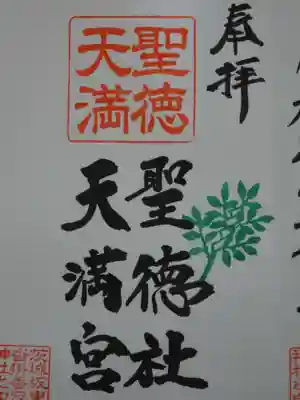 奉拝
聖徳
天満
聖徳社
天満宮